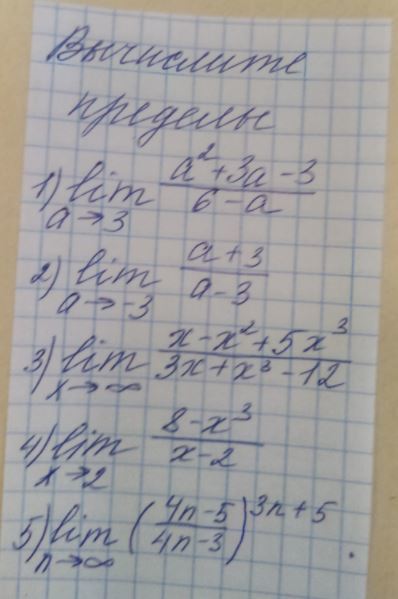 Вычислите
пределы
1) lim a→3 (a²+3a-3)/(6-a)
2) lim a→-3 (a+3)/(a-3)
3) lim x→∞ (x-x²+5x³)/(3x+x³-12)
4) lim x→2 (8-x³)/(x-2)
5) lim n→∞ ((4n-5)/(4n-3))^(3n+5).